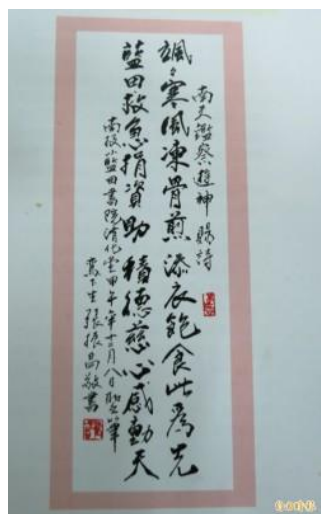 南天鑑察遊神 賜詩
颯々寒風凍骨煎添衣飽食此為先
藍田救急捐資助積德慈心感動天
南投藍田書院濟化堂甲午年十二月八日聖筆
鸞下生張振昌敬書
自由時報